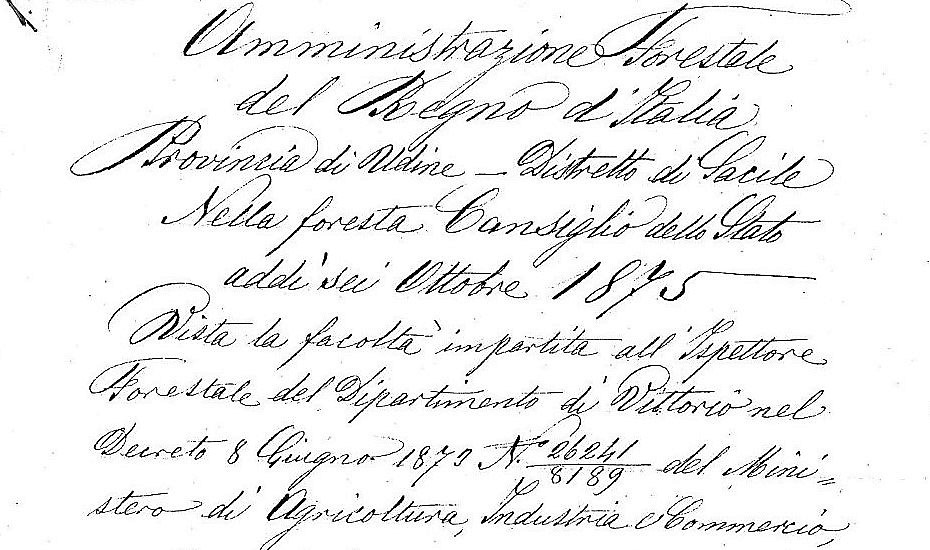 Amministrazione Forestale
del Regno d'Italia
Provincia di Udine — Distretto di Sacile
Nella foresta Cansiglio dello Stato
addì sei Ottobre 1875
Vista la facoltà impartita all'Ispettore
Forestale del Dipartimento di Vittorio nel
Decreto 8 Giugno 1873 N.° 26241/8189 del Mini=
stero di Agricoltura, Industria e Commercio,